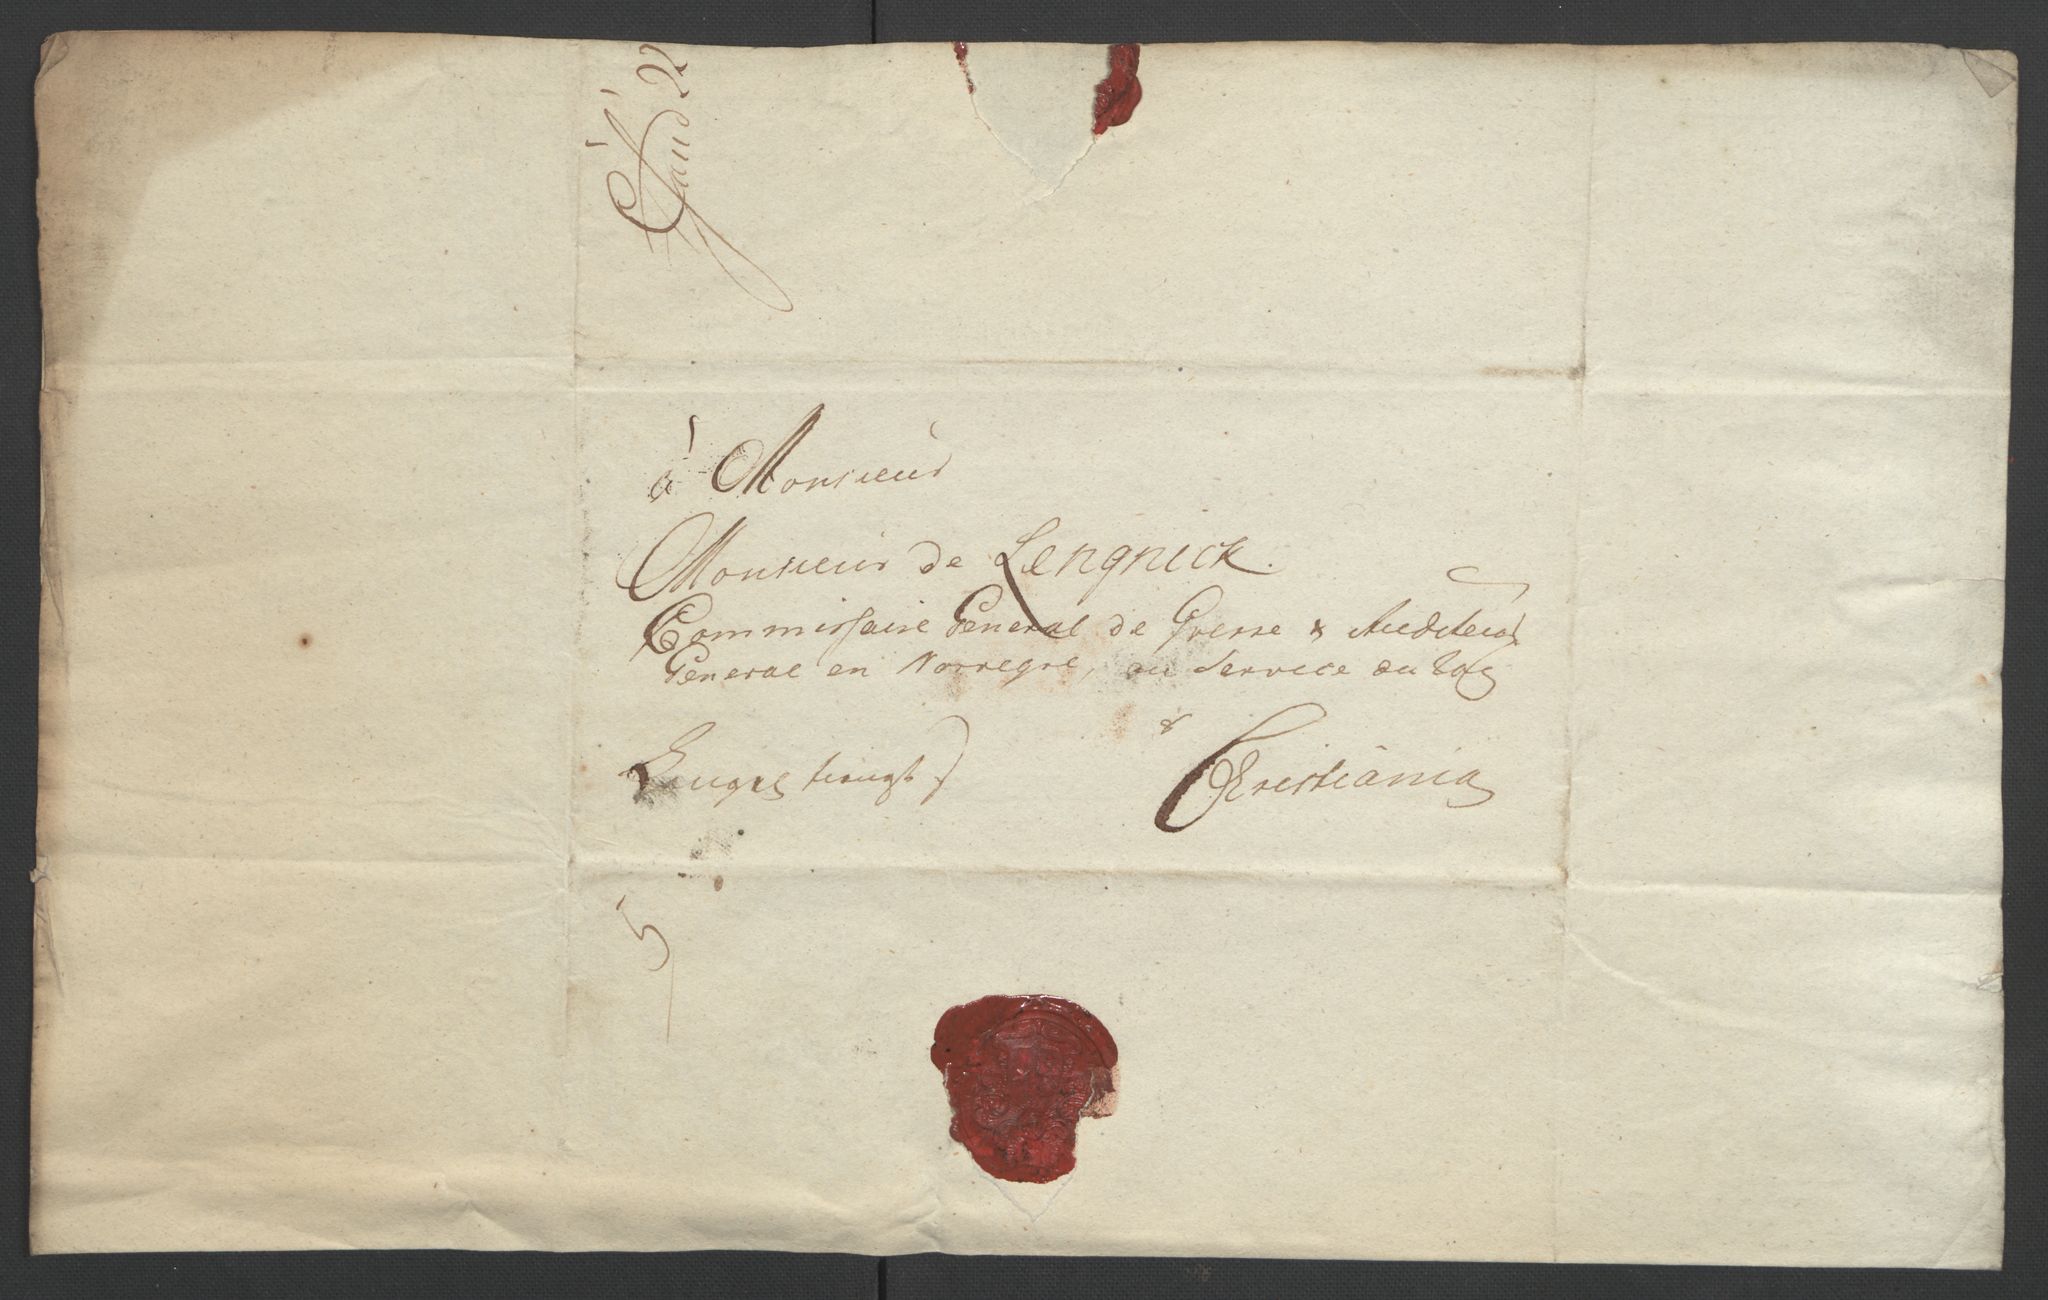 à Monsieur
Monsieur de Lengnick.
Commissaire General de Gverre & Auditeur
General en Norregve, au Service du Roÿ
â
Christiania
5